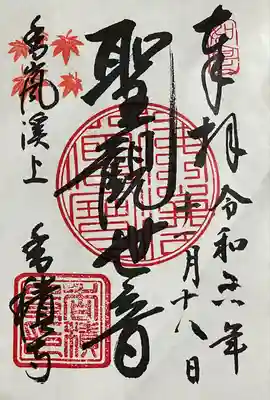 奉拝
令和六年
十一月十八日
聖觀世音
香嵐溪上
香積寺